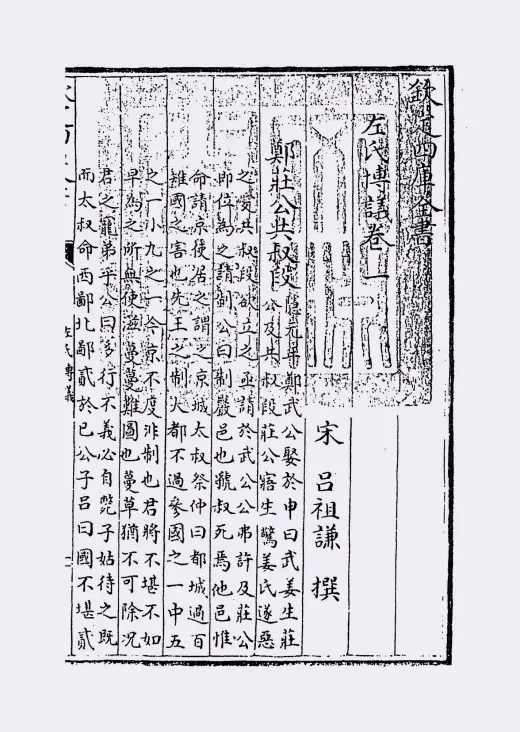 欽定四庫全書
左氏博議卷一
宋 呂祖謙 撰
鄭莊公共叔段
隱元年鄭武公娶於申曰武姜生莊
公及共叔段莊公寤生驚姜氏遂惡
之愛共叔段欲立之亟請於武公公弗許及莊公
即位為之請制公曰制巖邑也虢叔死焉他邑惟
命請京使居之謂之京城太叔祭仲曰都城過百
雉國之害也先王之制大都不過參國之一中五
之一小九之一今京不度非制也君將不堪不如
早為之所無使滋蔓蔓難圖也蔓草猶不可除況
君之寵弟乎公曰多行不義必自斃子姑待之既
而太叔命西鄙北鄙貳於已公子呂曰國不堪貳
左氏博議